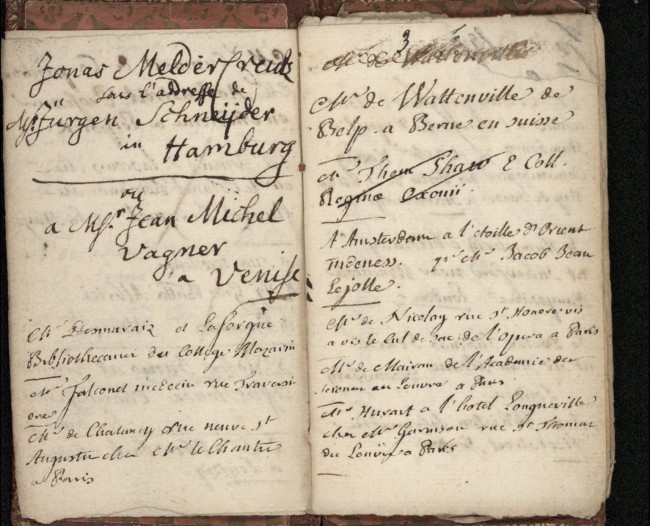 Jonas Meldercreutz
sous l'addresse de
Msr. Jürgen Schneijder
in Hamburg
ou
a Msr. Jean Michel
Vagner
a Venise
Mr. Desmaraiz et Laforque
Bibliothecaires du College Mazarin
Mr. falconet medecin rue Traversi
ere
Mr. de Chalancy rue neuve St
Augustin ches Mr. le Chantre
a Paris
3
Mr. de Wattenville
Mr. de Wattenville de
Belp. a Berne en suisse
Mr. Thom Shaw E Coll.
Reginæ Oxonii.
A Amsterdam a l'etoille d'Orient
Mr. Jacob Jean
Lejolle.
Mr. de Nicolay rue St. Honore vis
a vis le Cul de Sac de l'opera a Paris
Mr. de Mairan de l'Academie des
sciences au Louvre a Paris
Mr. Huraut a l'hotel Longueville
ches Mr. Garnison rue St Thomas
du Louvre a Paris